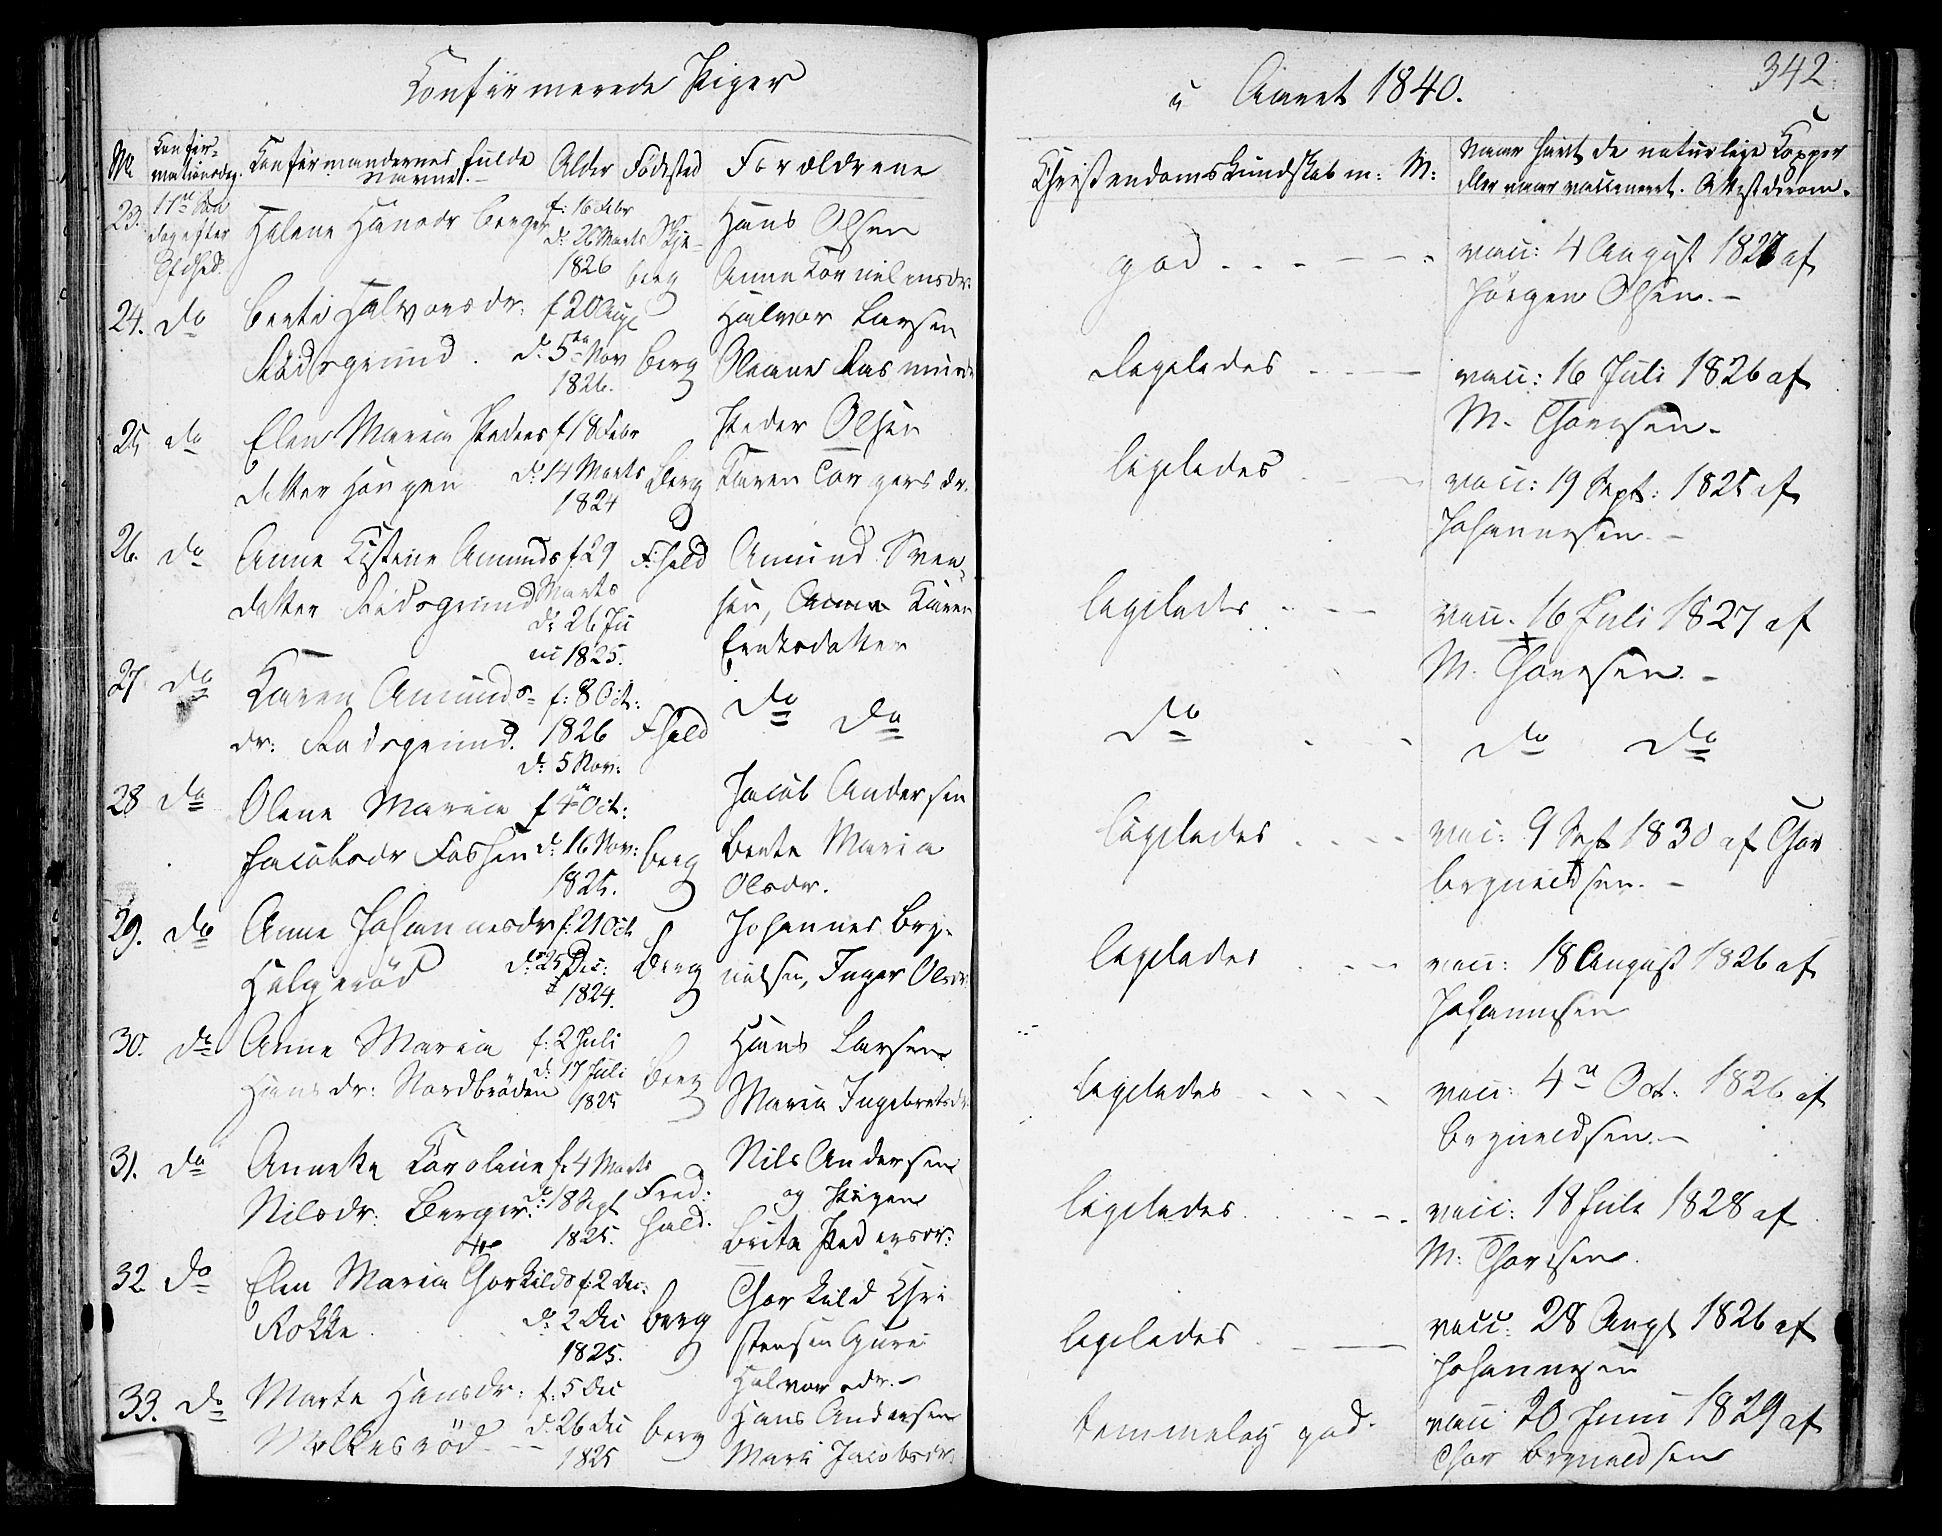 Confirmerede Piger
i Aaret 1840.
342
No
Confir-
mationsdag.
Confirmandernes fulde
Navne.
Alder
Födested
Forældrene
Christendomskundskab m: M:
Naar havt de naturlige Kopper
eller naar vaccineret. Attest derom.
23. 11te Søn
dag efter
Trfhed.
Helene Hansdr Berger
f: 16 Febr
d: 26 Marts
1826
Skje-
berg
Hans Olsen
Anne Cornelius dr.
god
vacc: 4 August 1827 af
Jörgen Olsen.
24. do
Berte Halvorsdr:
Rødsgrund.
f 20 Aug
d: 5te Nov
1826.
Berg
Halvor Larsen
Oleane Rasmus
Ligeledes
vacc: 16 Juli 1826 af
M. Thoresen.
25 do
Elen Maria Peders
datter Haugen
f 18 Febr
d: 14 Marts
1824
Berg
Peder Olsen
Karen Torgersdr.
ligeledes
vacc: 19 Sept: 1825 af
Johannesen.
26. do
Anne Kistine Amunds
datter Rødsgrund
f 29
Marts
d: 26 Ju
ni 1825.
F:hald
Amund Sven-
sen, Anne Karen
Eriksdatter
ligeledes
vacc. 16 Juli 1827 af
M. Thoresen.
27 do
Karen Amunds-
dr: Rødsgrund.
f: 8 Oct:
1826
d: 5 Nov:
F:hald
do do
do
do do
28 do
Olene Maria
Jacobsdr Fossen
f 4 Oct:
d: 16 Nov:
1825.
Berg
Jacob Andersen
Berte Maria
Olsdr.
ligeledes
vac: 9 Sept 1830 af Thor
Brynildsen.
29. do
Anne Johannesdr
Helgeröd
f: 21 Oct
d: 25 Dec:
1824.
Berg
Johannes Bry-
nilsen, Inger Olsdr:
ligeledes
vacc: 18 August 1826 af
Johannesen
30. do
Anne Maria
Hansdr: Nordbröden
f: 2 Juli
d: 17 Juli
1825
Berg
Hans Larsen
Maria Ingebretsdr.
ligeledes
vacc: 4de Oct. 1826 af
Brynildsen.
31. do
Annette Caroline
Nilsdr: Berger
f: 4 Marts
d: 18 Sept
1825.
Fred:
hald.
Nils Andersen
og Pigen
Brita Pedersdr:
ligeledes.
vacc: 18 Juli 1828 af
M: Thoresen.
32 do
Elen Maria Thorkilds
Rokke.
f: 2 Dec:
d: 2 Dec
1825.
Berg
Thorkild Chri
stensen Guri
Halvorsdr.
ligeledes
vacc: 28 Augt 1826 af
Johannesen
33. do
Marte Hansdr:
f: 5 Dec
d: 26 Dec
1825
Berg
Hans Andersen
Mari Jacobsdr
temmelig god.
vacc 20 Juni 1829 af
Thor Brynildsen